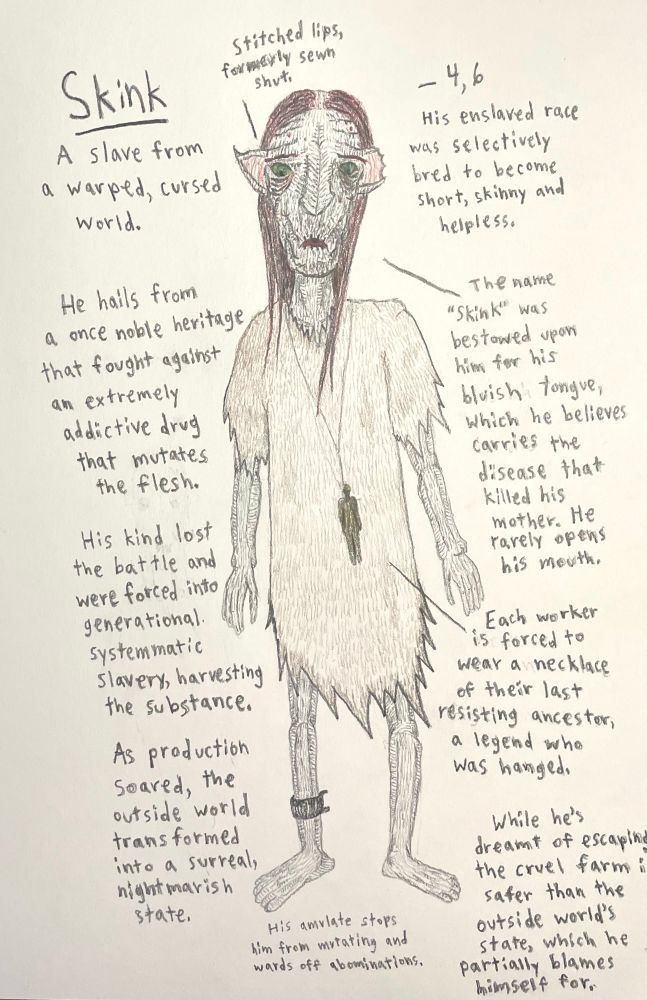 Skink
A slave from
a warped, cursed
world.
He hails from
a once noble heritage
that fought against
an extremely
addictive drug
that mutates
the flesh.
His kind lost
the battle and
were forced into
generational
systemmatic
slavery, harvesting
the substance.
As production
soared, the
outside world
transformed
into a surreal,
nightmarish
state.
Stitched lips,
formerly sewn
shut.
- 4,6
His enslaved race
was selectively
bred to become
short, skinny and
helpless.
The name
"Skink" was
bestowed upon
him for his
bluish tongue,
which he believes
carries the
disease that
killed his
mother. He
rarely opens
his mouth.
Each worker
is forced to
wear a necklace
of their last
resisting ancestor,
a legend who
was hanged.
While he's
dreamt of escaping
the cruel farm i
safer than the
outside world's
state, which he
partially blames
himself for.
His amulate stops
him from mutating and
wards off abominations.